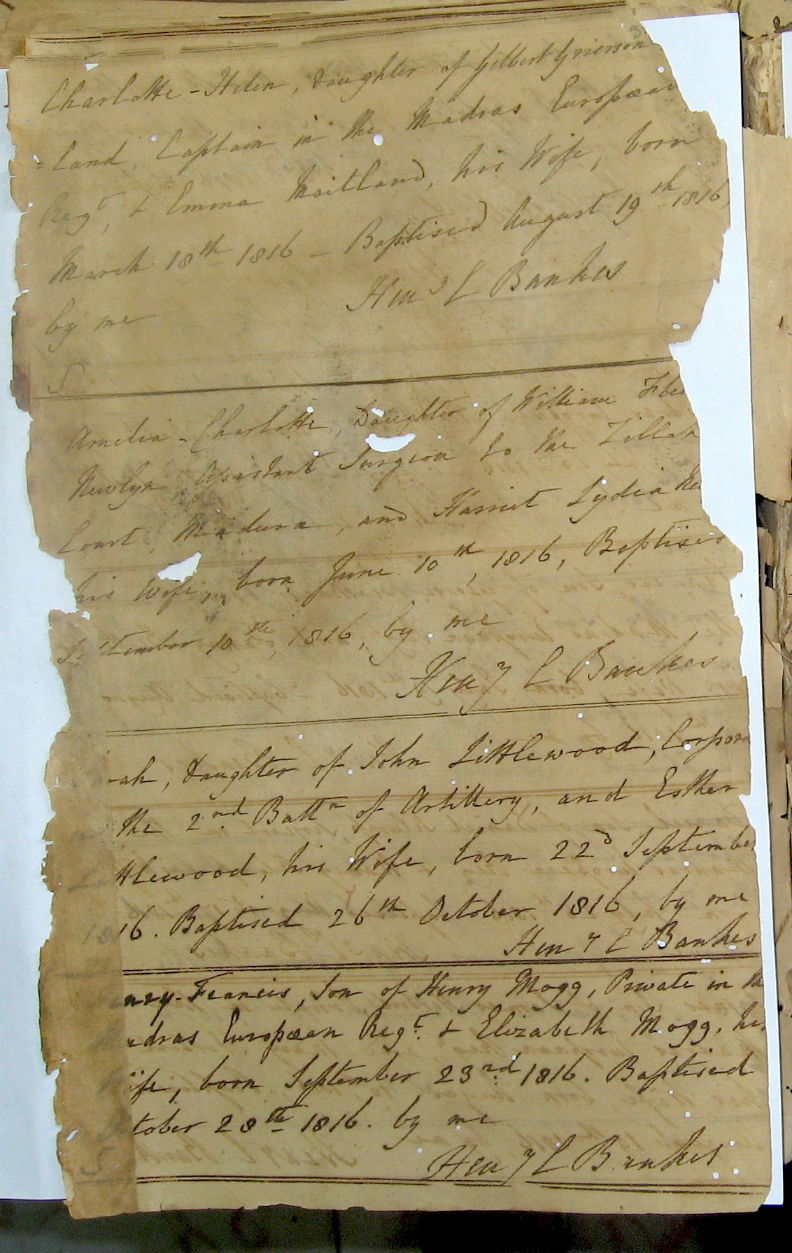 Charlotte-Helen, Daughter of Gilbert Grierson
=land, Captain in the Madras European
Regt, & Emma Maitland, his Wife, born
March 18th 1816 - Baptised August 19th 1816,
by me Heny L Bankes
S
Amelia-Charlotte, Daughter of William
Newlyn Assistant Surgeon to the Zillah
Court, Madura, and Harriet Lydia
his Wife, born June 10th, 1816, Baptised
September 10th, 1816, by me
Heny L Bankes
ah, Daughter of John Littlewood, Corpora
the 2nd Battn of Artillery, and Esther
tlewood, his Wife, born 22d September
1816. Baptised 26th October 1816, by me
Heny L Bankes
nry-Francis, Son of Henry Mogg, Private in the
adras European Regt. & Elizabeth Mogg, his
ife, born September 23rd 1816. Baptised
tober 28th 1816. by me
S
Heny L Bankes